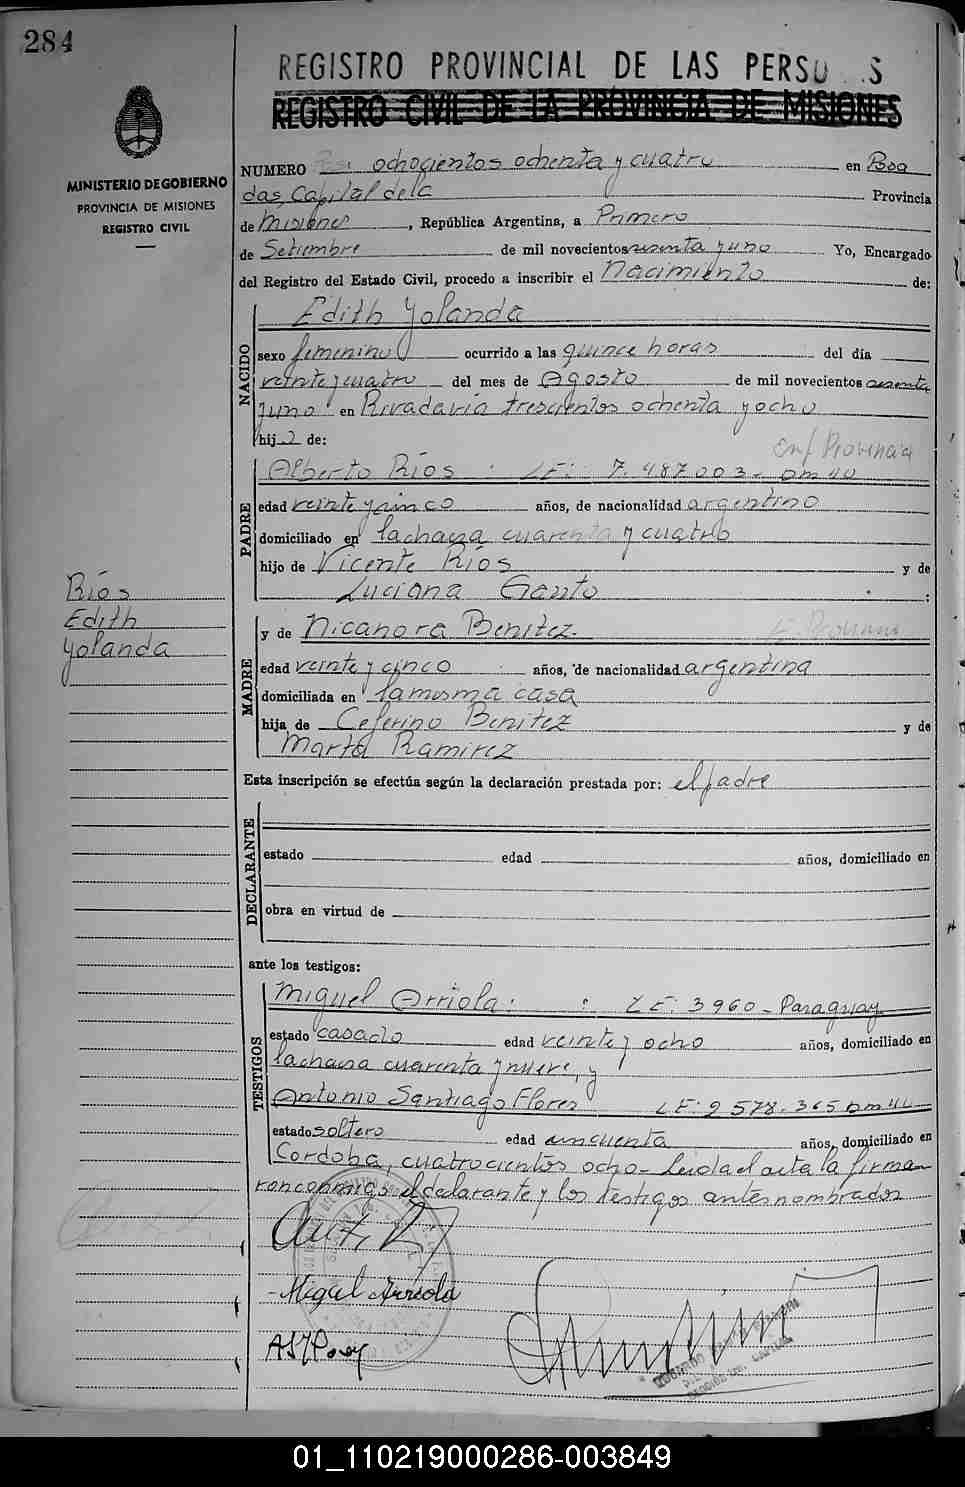 284
REGISTRO PROVINCIAL DE LAS PERSO S
REGISTRO CIVIL DE LA PROVINCIA DE MISIONES
MINISTERIO DE GOBIERNO
PROVINCIA DE MISIONES
REGISTRO CIVIL
NUMERO ochocientos ochenta y cuatro en Posa
das, Capital de la Provincia
de Misiones, República Argentina, a Primero
de Setiembre de mil novecientos sesenta y uno Yo, Encargado
del Registro del Estado Civil, procedo a inscribir el Nacimiento de:
NACIDO
Edith Yolanda
sexo femenino ocurrido a las quince horas del día
veinte y cuatro del mes de Agosto de mil novecientos sesenta
y uno en Rivadavia trescientos ochenta y ocho
hija de:
PADRE
Alberto Ríos LE: 7.487003- DM 40
edad veinte y cinco años, de nacionalidad argentino
domiciliado en la chacra cuarenta y cuatro
hijo de Vicente Ríos y de
Luciana :
Ríos
Edith
Yolanda
MADRE
y de Nicanora Benitez.
edad veinte y cinco años, de nacionalidad argentina
domiciliada en la misma casa
hija de Ceferino Benitez y de
Marta Ramirez
Esta inscripción se efectúa según la declaración prestada por: el padre
DECLARANTE
estado edad años, domiciliado en
obra en virtud de
ante los testigos:
TESTIGOS
Miguel Arriola: : LE: 3960- Paraguay
estado casado edad veinte y ocho años, domiciliado en
la chacra cuarenta y nueve, y
Antonio Santiago Flores LE: 2578.365 DM 40
estado soltero edad cincuenta años, domiciliado en
Cordoba, cuatrocientos ocho- Leida el acta la firma
ron conmigo el declarante y los testigos antes nombrados
Miguel Arriola
01_110219000286-003849